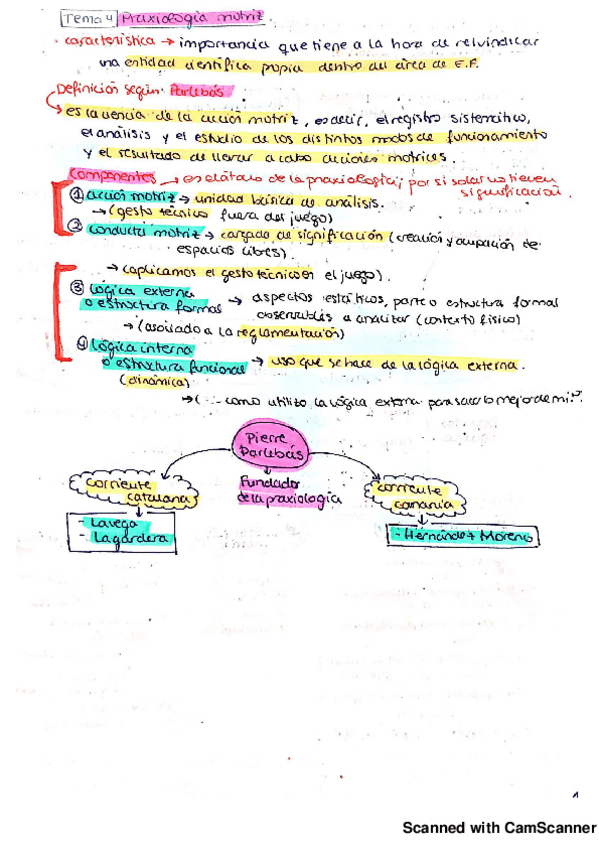 Tema 4 Praxiología motriz.
· característica → importancia que tiene a la hora de reivindicar
una entidad científica propia dentro del área de E.F.
Definición según: Parlebás
→ es la ciencia de la acción motriz, es decir, el registro sistemático,
el análisis y el estudio de los distintos modos de funcionamiento
y el resultado de llevar a cabo acciones motrices.
Componentes → es el átomo de la praxiología; por si solas no tienen
significación.
① acción motriz → unidad básica de análisis.
→ (gesto técnico fuera del juego)
② conducta motriz → cargada de significación (creación y ocupación de
espacios libres).
→ (aplicamos el gesto técnico en el juego).
③ lógica externa
o estructura formal → aspectos estáticos, parte o estructura formal
observables a analizar (contexto físico)
→ (asociado a la reglamentación)
④ lógica interna
o estructura funcional → uso que se hace de la lógica externa.
(dinámica)
→ ( como utilizo la lógica externa para sacar lo mejor de mi
Pierre
Parlebás
corriente
catalana
Fundador
de la praxiología
corriente
canaria
- Lavega
- Lagardera
- Hernández Moreno
1
Scanned with CamScanner